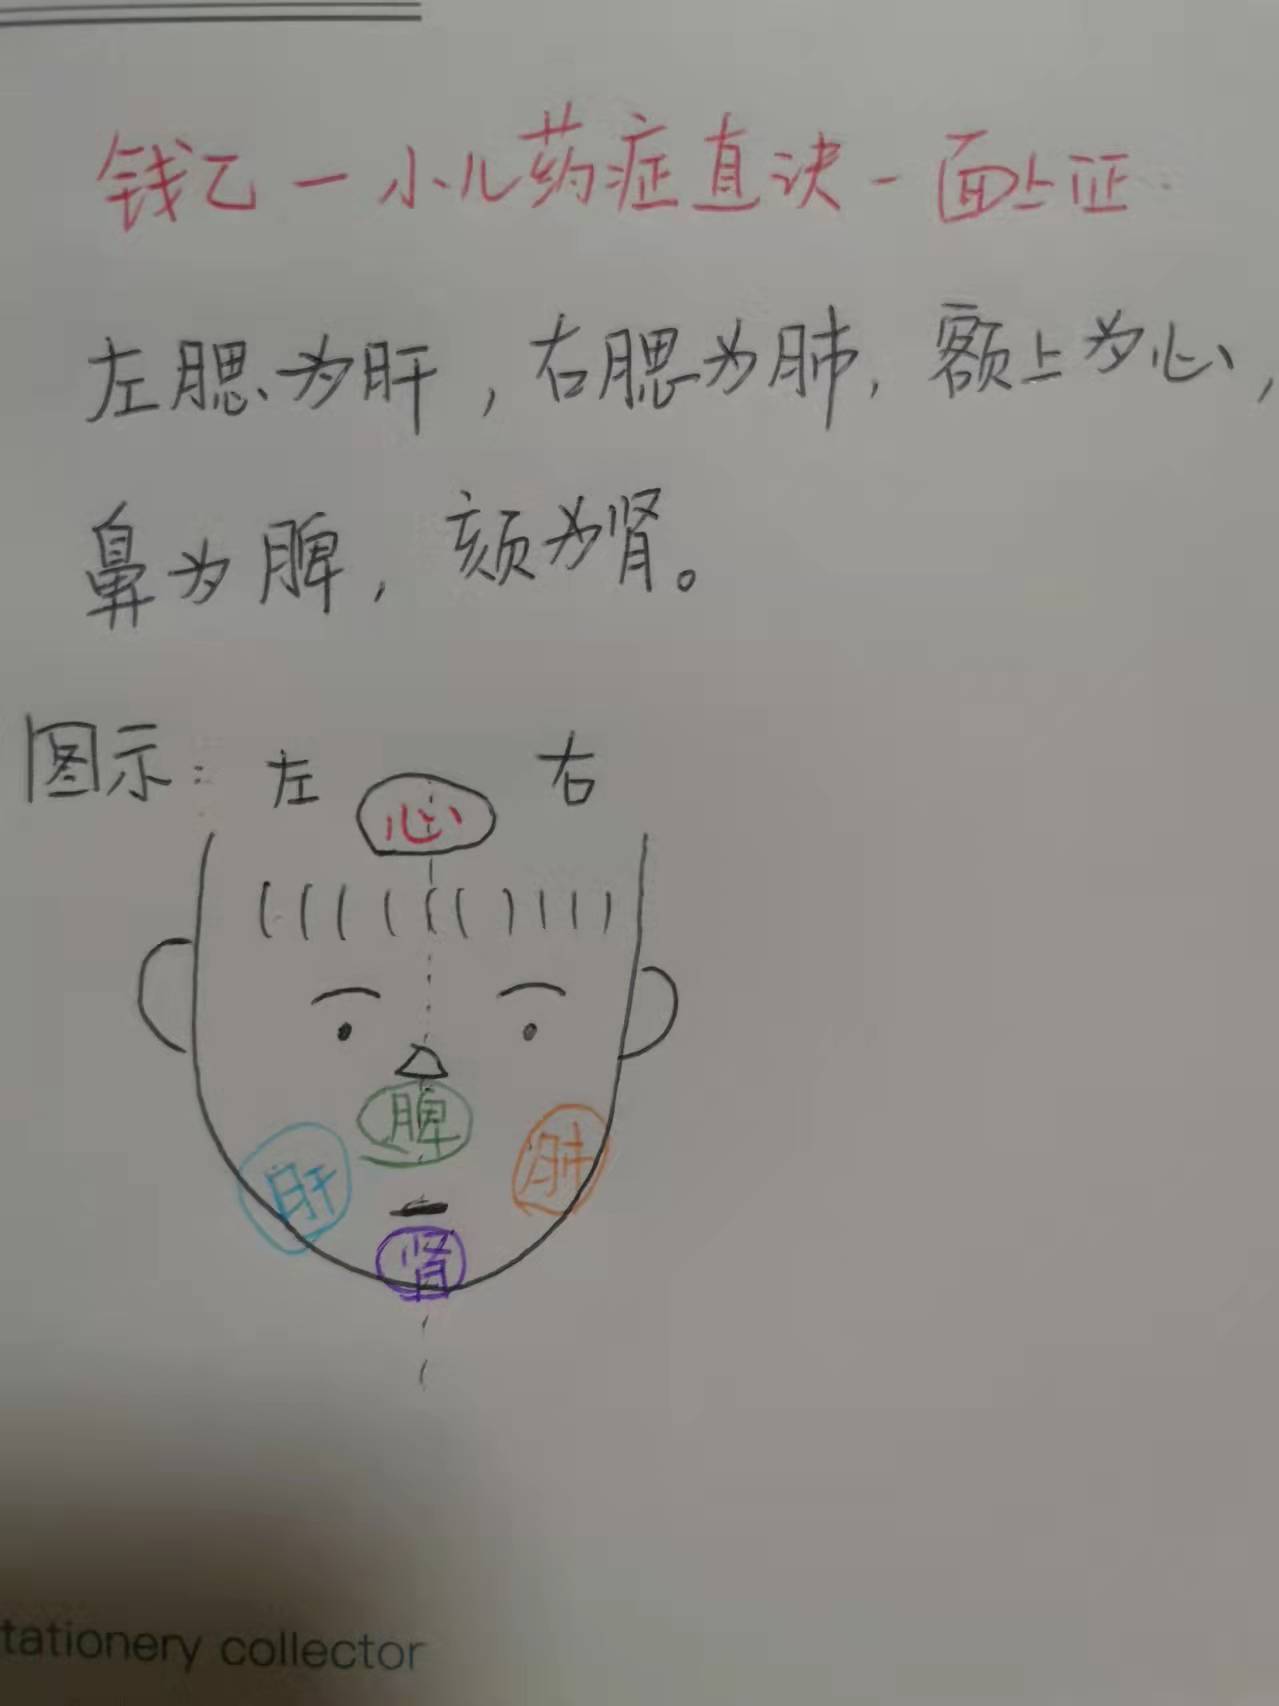 钱乙一小儿药症直决-面上证:
左腮为肝,右腮为肺,额上为心,
鼻为脾,颏为肾。
图示: 左 右
心
脾
肝 肺
肾
tationery collector